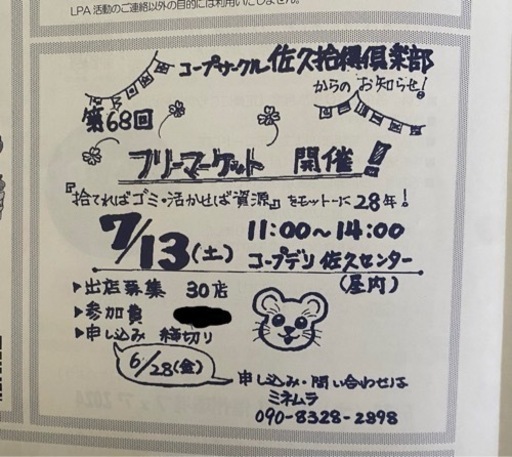 LPA活動のご連絡以外の目的には利用いたしません。
コープサークル 佐久拾得倶楽部
からの お知らせ!
第68回
フリーマーケット 開催!
『捨てればゴミ・活かせば資源』をモットーに28年!
7/13(土) 11:00～14:00
コープデリ 佐久センター
(屋内)
▶出店募集 30店
▶参加費
▶申し込み 締切り
6/28(金)
申し込み・問い合わせは
ミネムラ
090-8328-2898